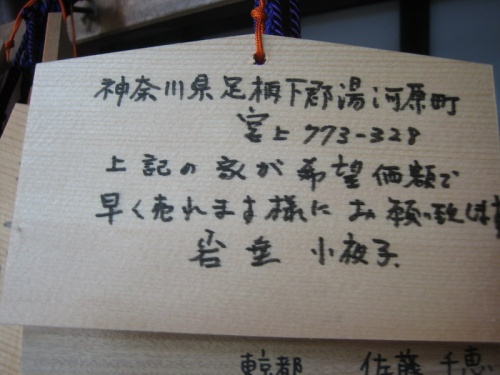 神奈川県足柄下郡湯河原町
宮上773-328
上記の家が希望価額で
早く売れます様にお願い致しま
岩垂 小夜子
東京都 佐藤千恵